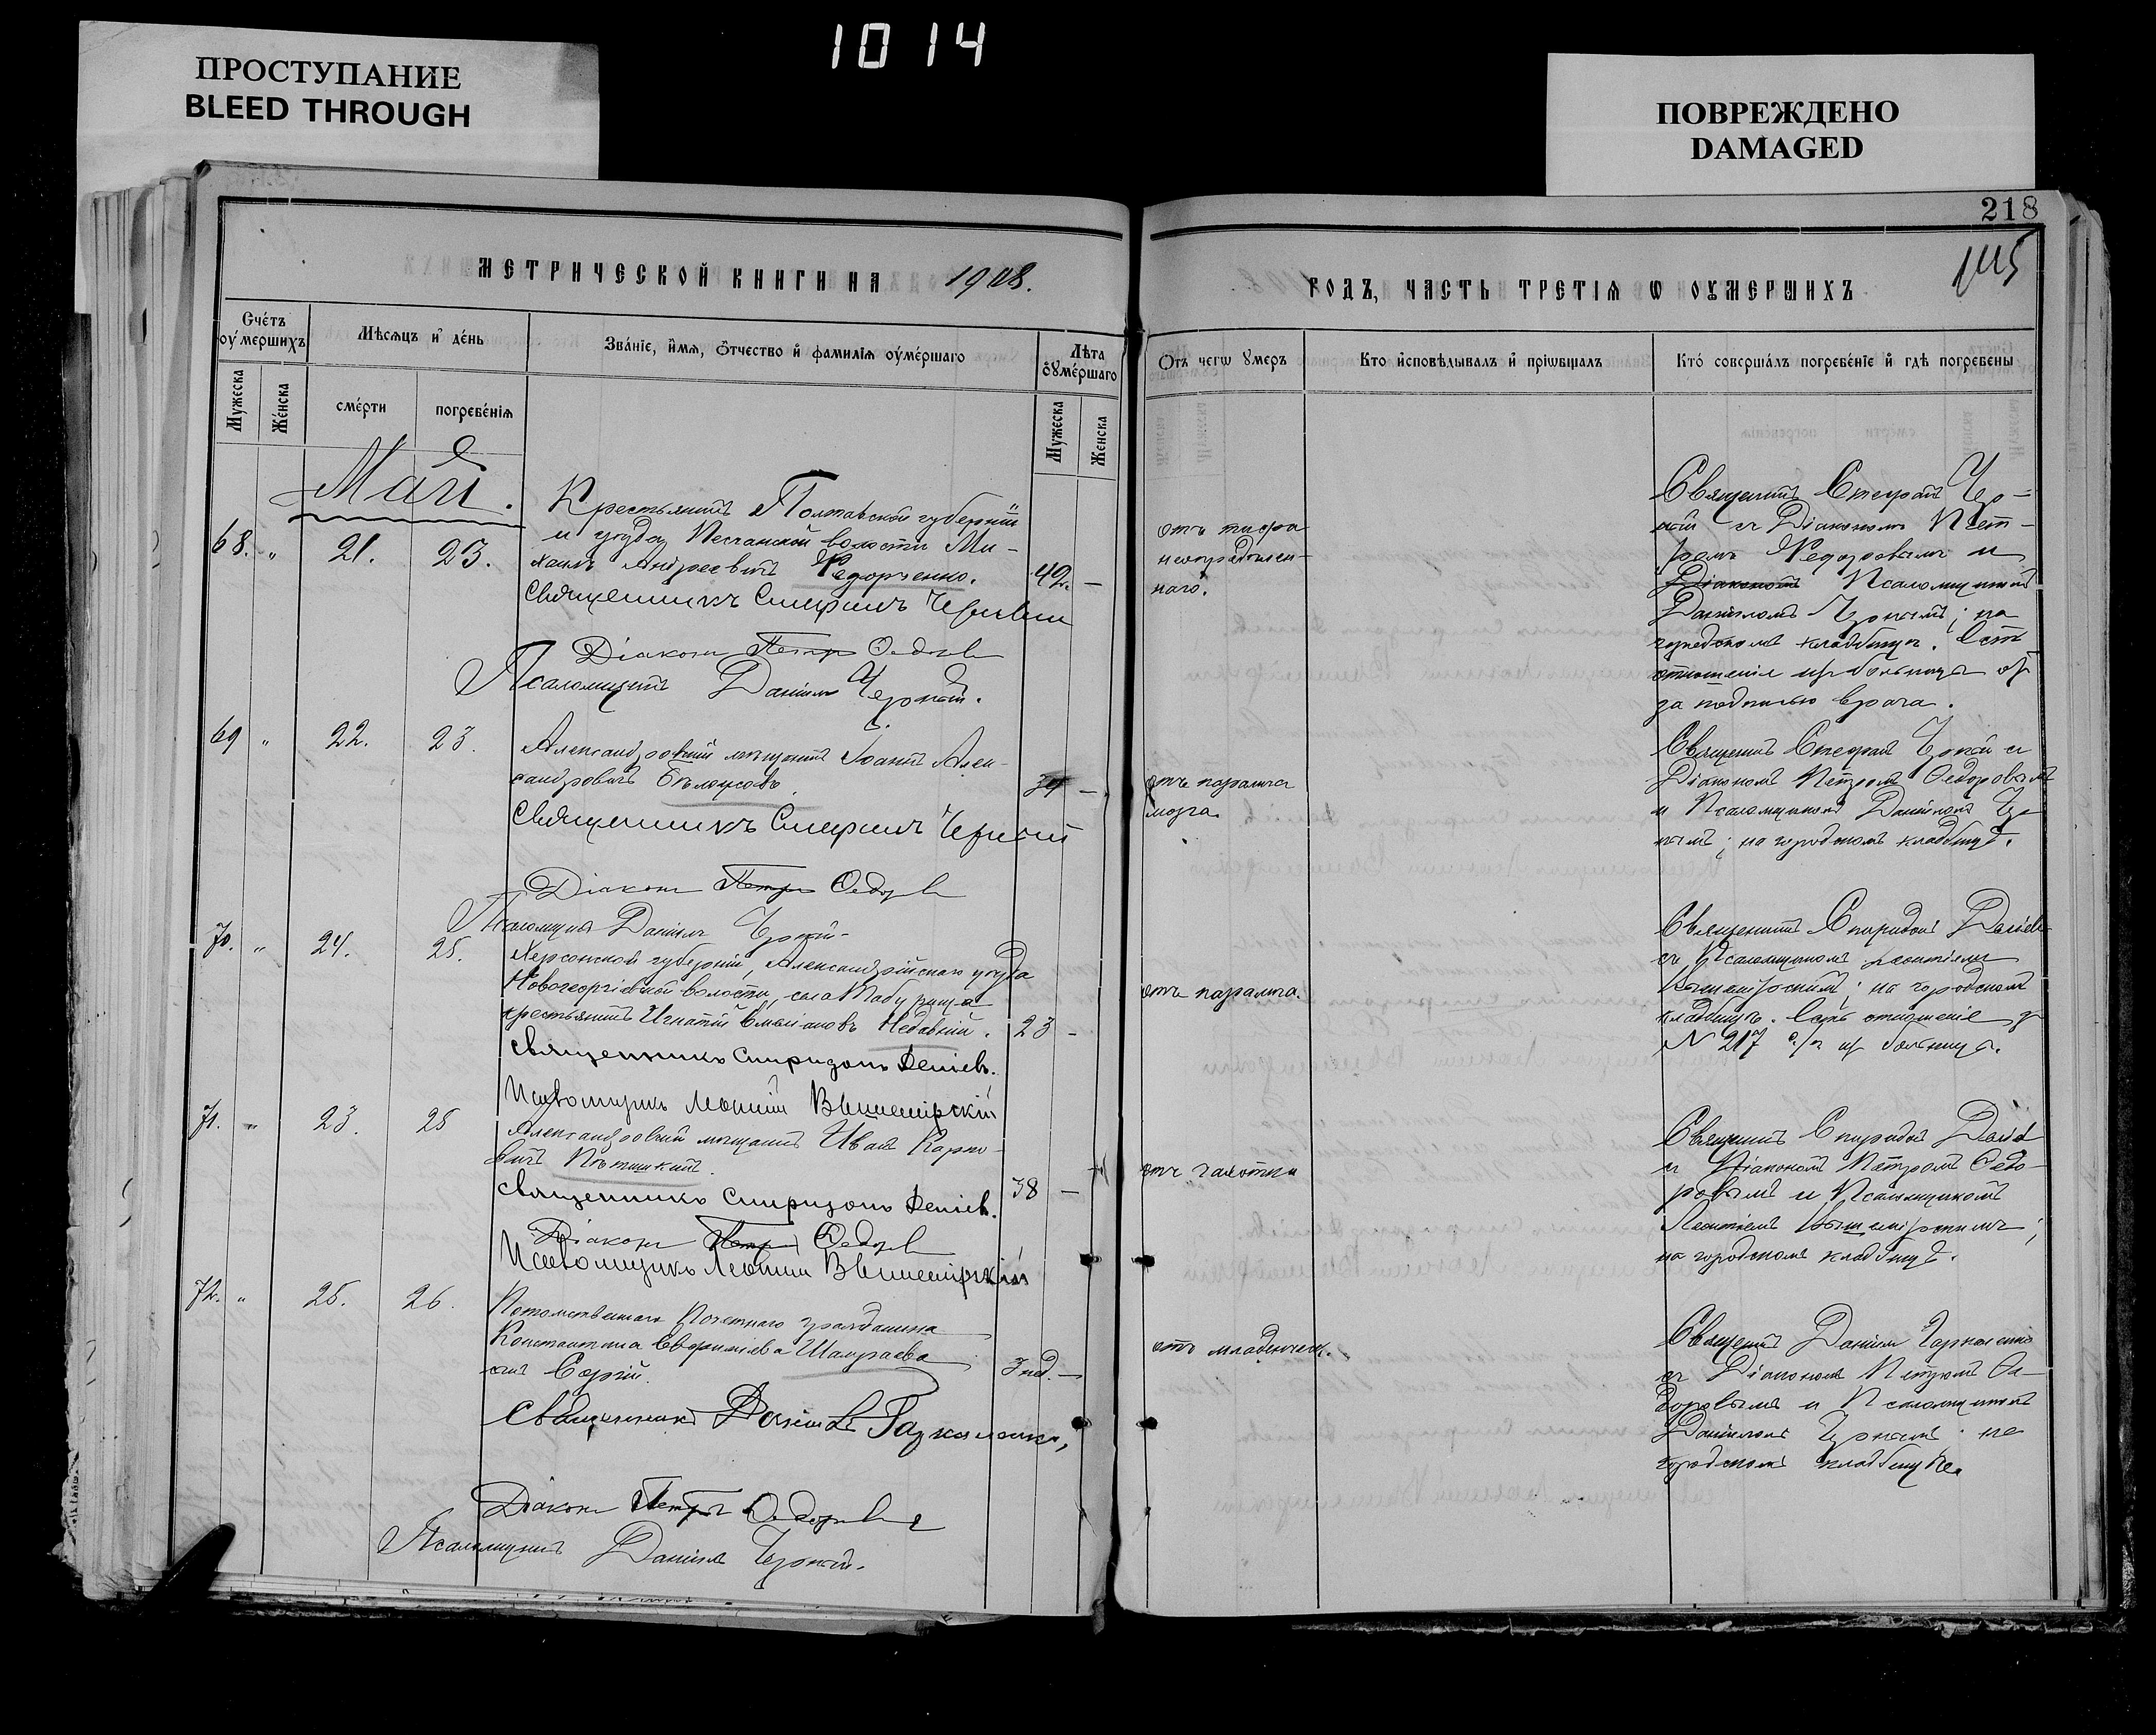 1014
ПРОСТУПАНИЕ
BLEED THROUGH
ПОВРЕЖДЕНО
DAMAGED
218
МЕТРИЧЕСКОЙ КНИГИ НА 1908.
Счетъ оумершихъ
Мѣсяцъ и день
Званіе, имя, отчество и фамилія оумершаго
Лѣта оумершаго
Мужеска
Женска
смерти
погребенія
Мужеска
Женска
Май.
68. " 21. 23.
Крестьянинъ Полтавской губерніи
и уѣзда Песчанской волости Ми-
хаилъ Андреевичъ Федорченко. 42. —
Священникъ Стефанъ Черный
Діаконъ Петръ Федоровъ
Псаломщикъ Даніилъ Черный.
69 " 22. 23.
Александровскій мѣщанинъ Іоаннъ Алек-
сандровичъ Бѣлоусовъ. —
Священникъ Стефанъ Черный
Діаконъ Петръ Федоровъ
Псаломщикъ Даніилъ Черный.
70. " 24. 25.
Херсонской губерніи, Александрійскаго уѣзда
Новогеоргіевской волости, села Табурища
крестьянинъ Игнатій Емельяновъ Недавній. 23 —
Священникъ Спиридонъ Деніев.
Псаломщикъ Леонтій Вышемірскій
71. " 23. 25
Александровскій мѣщанинъ Иванъ Карпо-
вичъ 38 —
Священникъ Спиридонъ Деніев.
Діаконъ Петръ Федоровъ
Псаломщикъ Леонтій Вышемірскій
72. " 25. 26.
Потомственнаго Почетнаго гражданина
Константина Шамраева
сынъ Сергій. 3 нед. —
Священникъ Даніилъ
Діаконъ Петръ Федоровъ
Псаломщикъ Даніилъ Черный.
ГОДЪ, ЧАСТЬ ТРЕТІЯ Ѡ ОУМЕРШИХЪ
Отъ чегѡ умеръ
Кто исповѣдывалъ и пріѡбщалъ
Кто совершалъ погребеніе и гдѣ погребены
отъ тифа
неопредѣлен-
наго.
Священникъ Стефанъ Чер-
ный съ Діакономъ Пет-
ромъ Федоровымъ и
Діаконом Псаломщикомъ
Даніиломъ Чернымъ; на
городскомъ кладбищѣ. Есть
отношеніе изъ больницы
за подписью врача.
отъ паралича
мозга.
Священникъ Стефанъ Черный съ
Діакономъ Петромъ Федоровымъ
и Псаломщикомъ Даніиломъ Чер-
нымъ; на городскомъ кладбищѣ.
отъ паралича.
Священникъ Спиридонъ Деніевъ
съ Псаломщикомъ Леонтіемъ
Вышемірскимъ; на городскомъ
кладбищѣ. Есть отношеніе за
№ 217 изъ больницы.
отъ чахотки
Священникъ Спиридонъ Деніев
съ Діакономъ Петромъ Федо-
ровымъ и Псаломщикомъ
Леонтіемъ Вышемірскимъ;
на городскомъ кладбищѣ.
отъ младенческ.
Священникъ Даніилъ
съ Діакономъ Петромъ Фе-
доровымъ и Псаломщикомъ
Даніиломъ Чернымъ; на
городскомъ кладбищѣ.